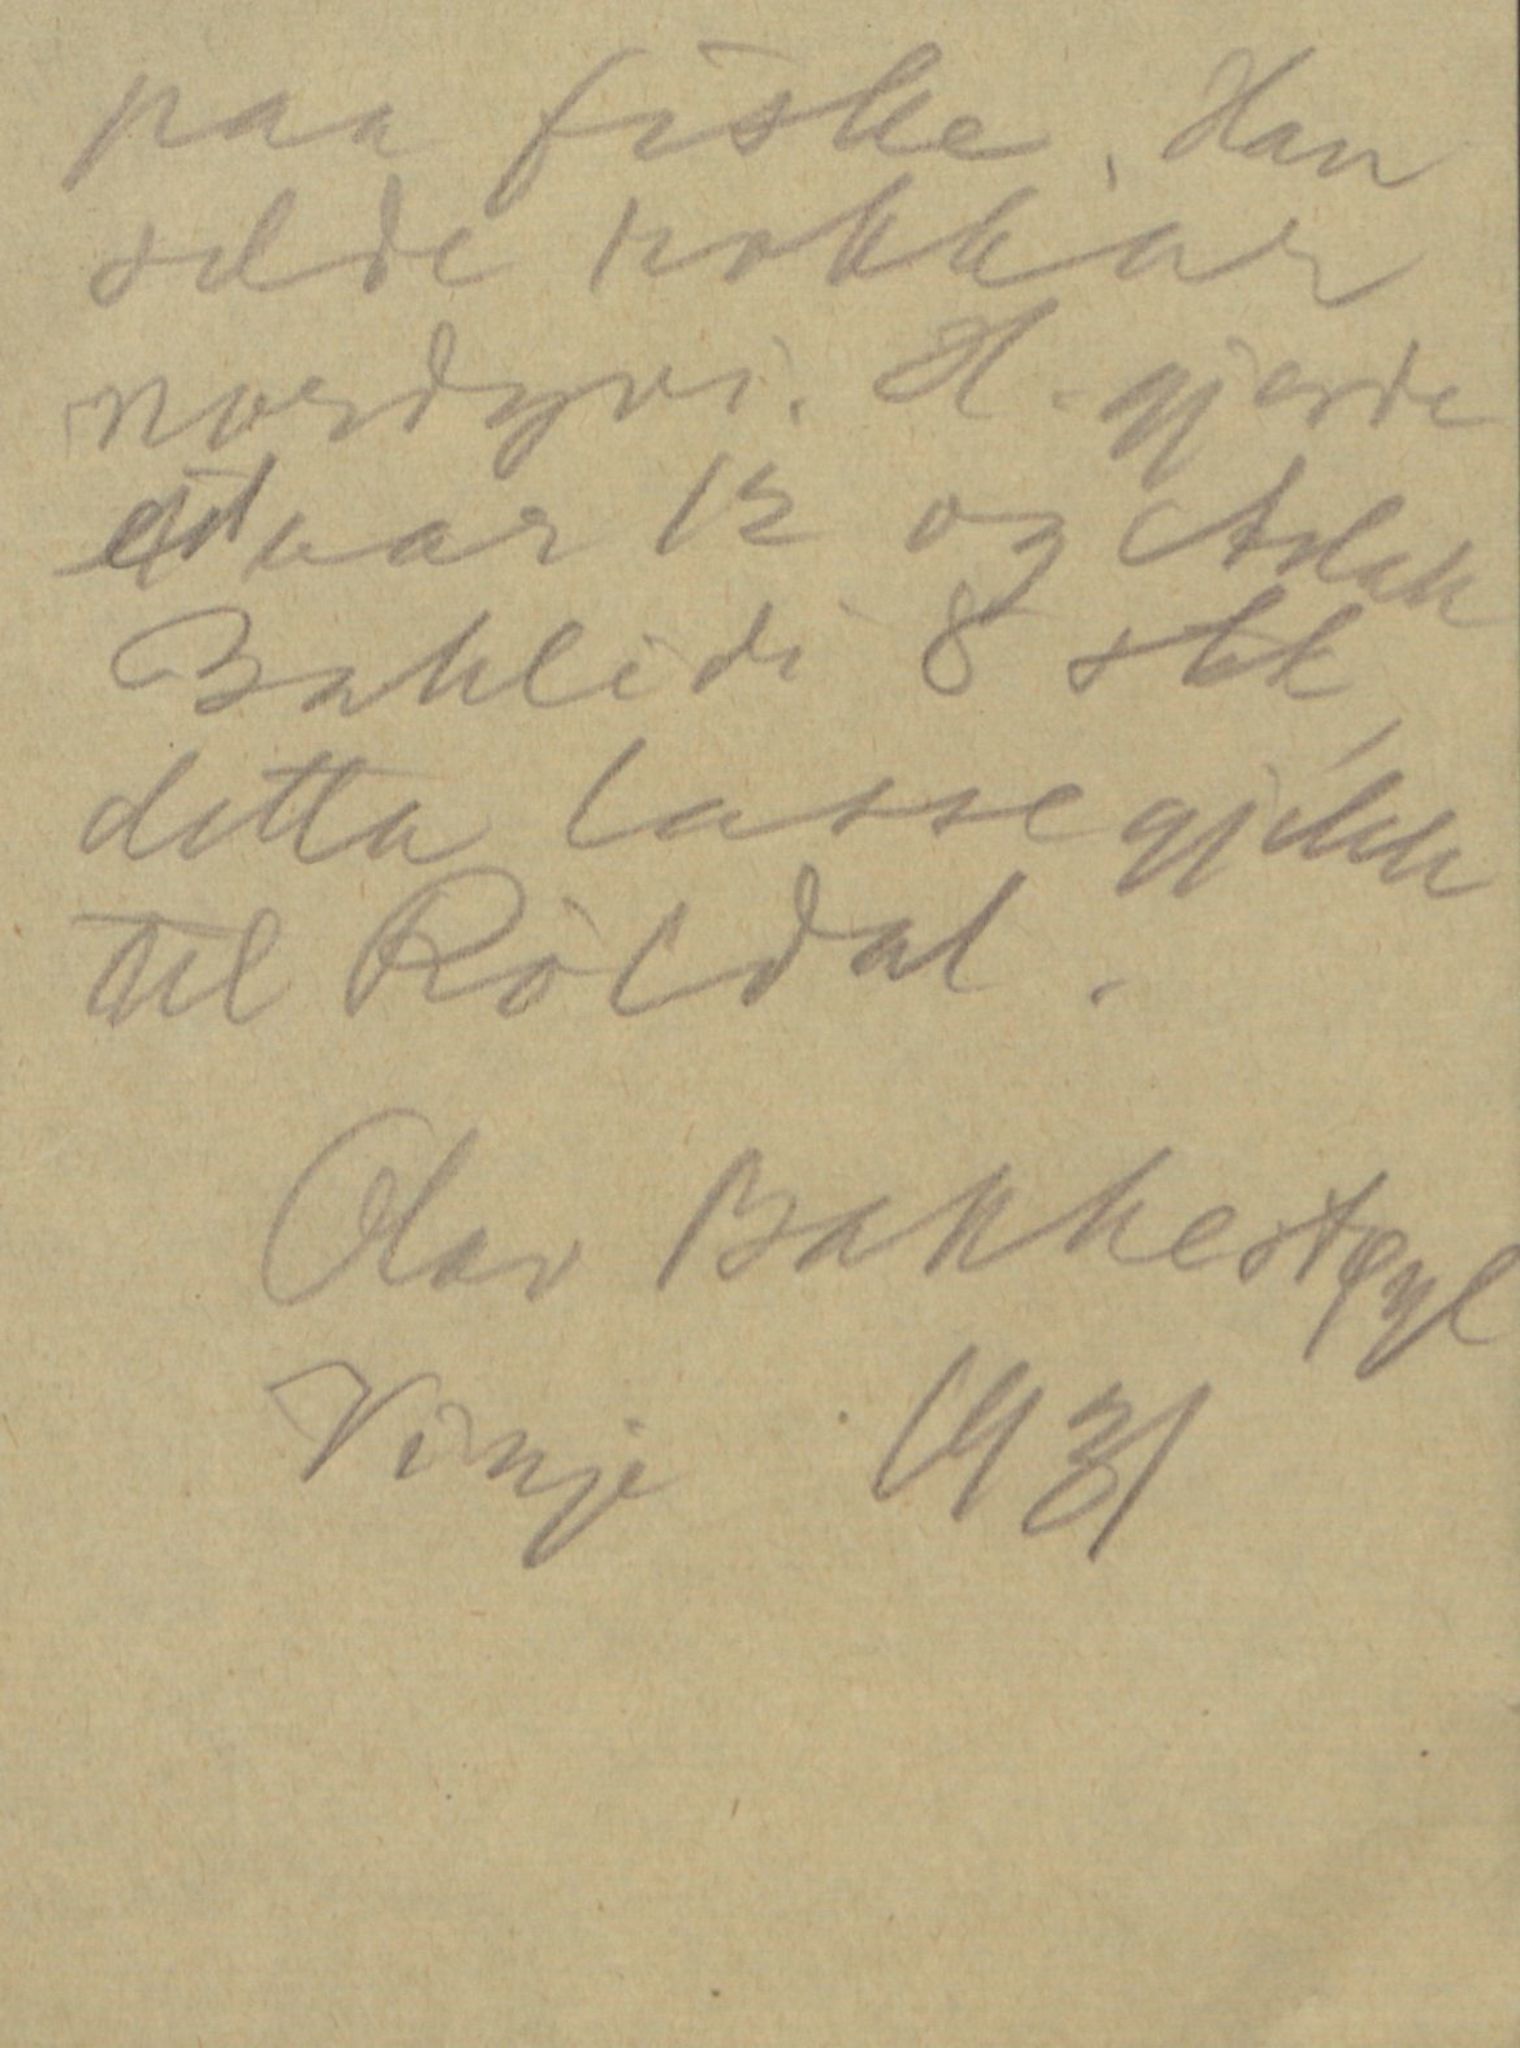 paa fiske. Han
selde rokkar
nordyvi. H. gjorde
eit aar 12 og Aslak
Baklidi 8 stk,
detta lasse gjekk
til Röldal.
Olav Bakkestøyl
Vinje 1931